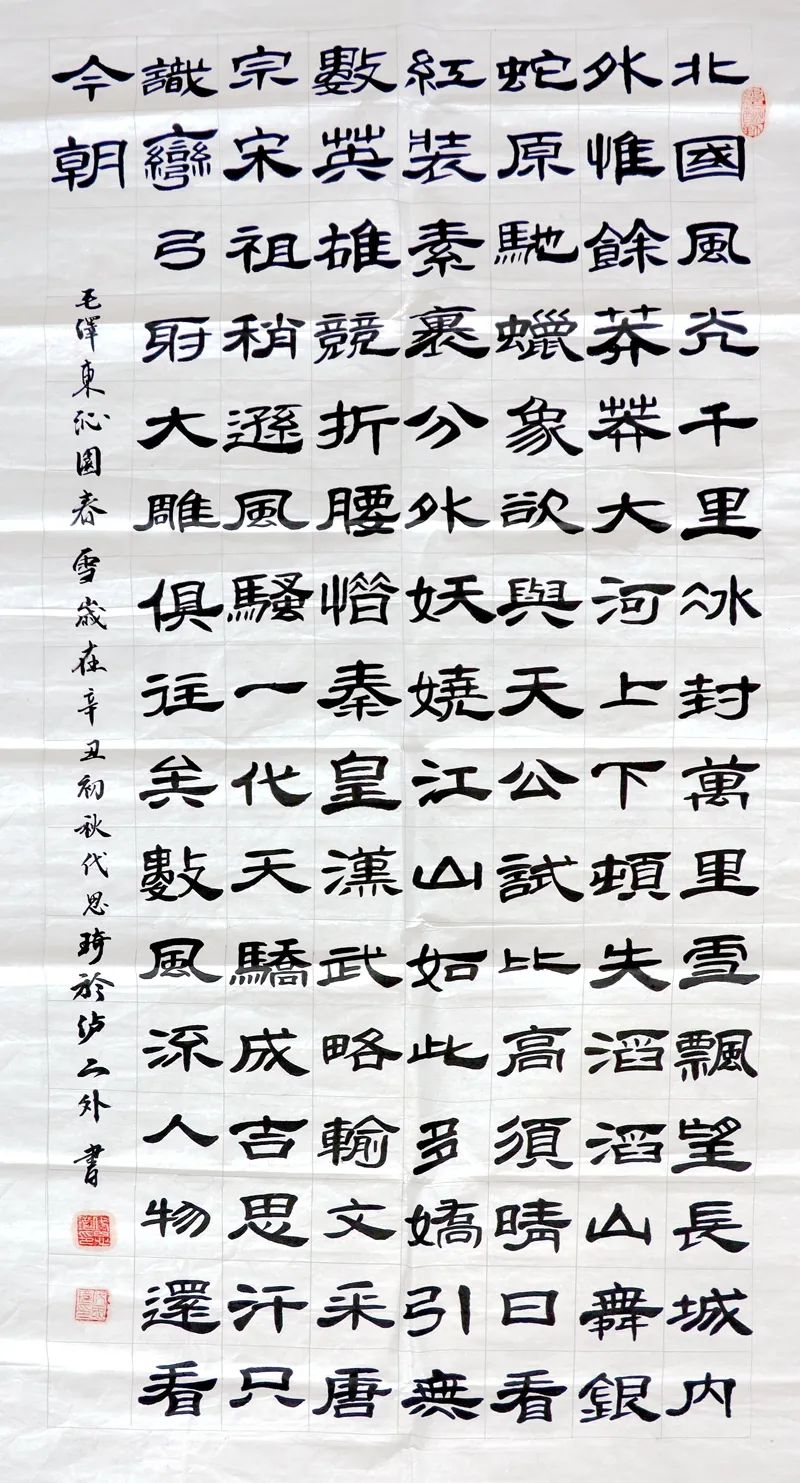 北國風光千里冰封萬里雪飄望長城內
外惟餘莽莽大河上下頓失滔滔山舞銀
蛇原馳蠟象欲與天公試比高須晴日看
紅裝素裹分外妖嬈江山如此多嬌引無
數英雄競折腰惜秦皇漢武略輸文采唐
宗宋祖稍遜風騷一代天驕成吉思汗只
識彎弓射大雕俱往矣數風流人物還看
今朝
毛澤東沁園春雪歲在辛丑初秋代思琦於泸二外書